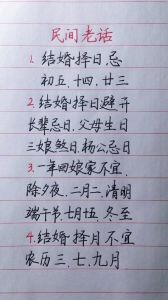 民间老话
1. 结婚择日忌
初五、十四、廿三
2. 结婚择日避开
长辈忌日、父母生日
三娘煞日、杨公忌日
3. 一年回娘家不宜
除夕夜、二月二、清明
端午节、七月十五、冬至
4. 结婚择月不宜
农历三、七、九月